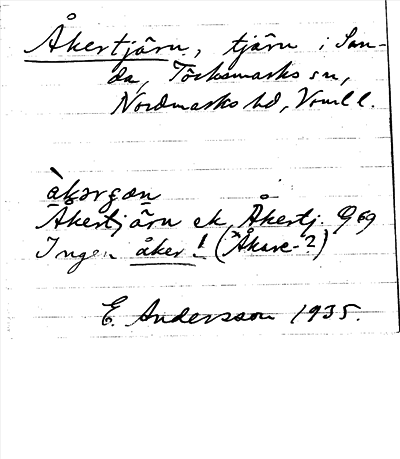 Åkertjärn, tjärn i San-
da, Töcksmarks sn,
Nordmarks hd, Vrml l.
àkərɕæn
Åkertjärn ek, Åkertj. G 69
Ingen åker! (*Åkare-?)
E. Andersson 1935.